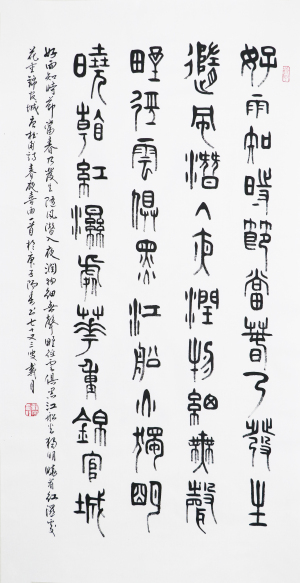 好雨知時節當春乃發生
隨風潛入夜潤物細無聲
野徑雲俱黑江船火獨明
曉看紅濕處華重錦官城
好雨知時節當春乃發生隨風潛入夜潤物細無聲野徑雲俱黑江船火獨明曉看紅濕處
花重錦官城唐杜甫詩春夜喜雨一首於庚子陽春書七十又三叟